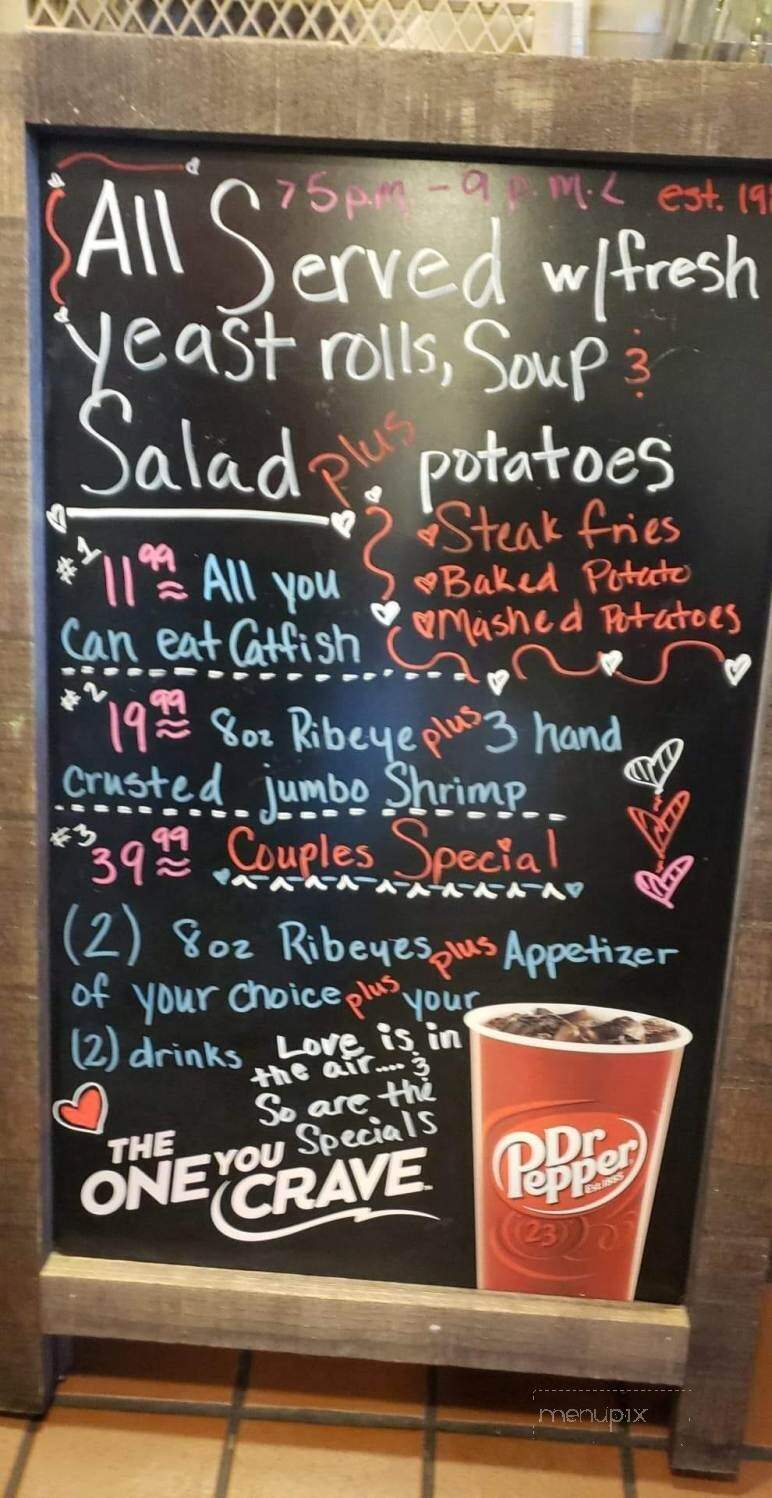 >5p.m. - 9p.m.< est.
All Served w/fresh
yeast rolls, Soup &
Salad plus potatoes
♥Steak fries
♥Baked Potato
♥Mashed Potatoes
#1 11.99 All you
Can eat Catfish
#2 19.99 8oz Ribeye plus 3 hand
crusted jumbo Shrimp
#3 39.99 Couples Special
(2) 8oz Ribeyes plus Appetizer
of your choice plus your
(2) drinks
Love is in
the air.... &
So are the
Specials
THE
ONE YOU
CRAVE
Dr
Pepper
Est. 1885
23
menupix